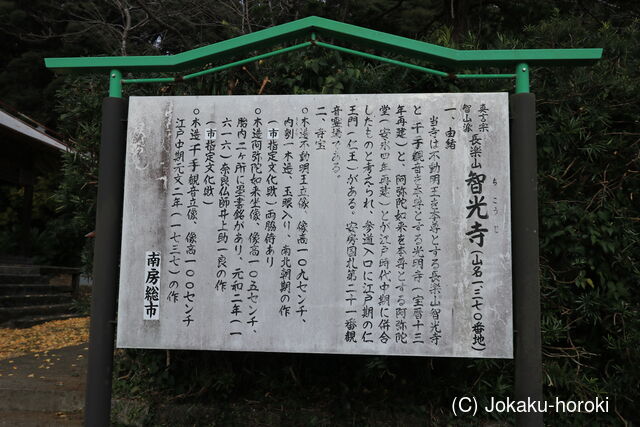 真言宗
智山派
長楽山 智光寺(山名一三七〇番地)
ちこうじ
一、由緒
当寺は不動明王を本尊とする長楽山智光寺
と千手観音を本尊とする光明寺(宝暦十三
年再建)と、阿弥陀如来を本尊とする阿弥陀
堂(安永四年再建)とが江戸時代中期に併合
したものと考えられ、参道入口に江戸期の仁
王門(仁王)がある。安房国札第二十一番観
音霊場である。
二、寺宝
○木造不動明王立像、像高一〇九センチ、
内刳一木造、玉眼入り、南北朝期の作
(市指定文化財)両脇侍あり
○木造阿弥陀如来坐像、像高一〇五センチ、
胎内二ヶ所に墨書銘があり、元和二年(一
六一六)奈良仏師井上助一良の作
(市指定文化財)
○木造千手観音立像、像高一〇〇センチ
江戸中期元文二年(一七三七)の作
南房総市
(C) Jokaku-horoki